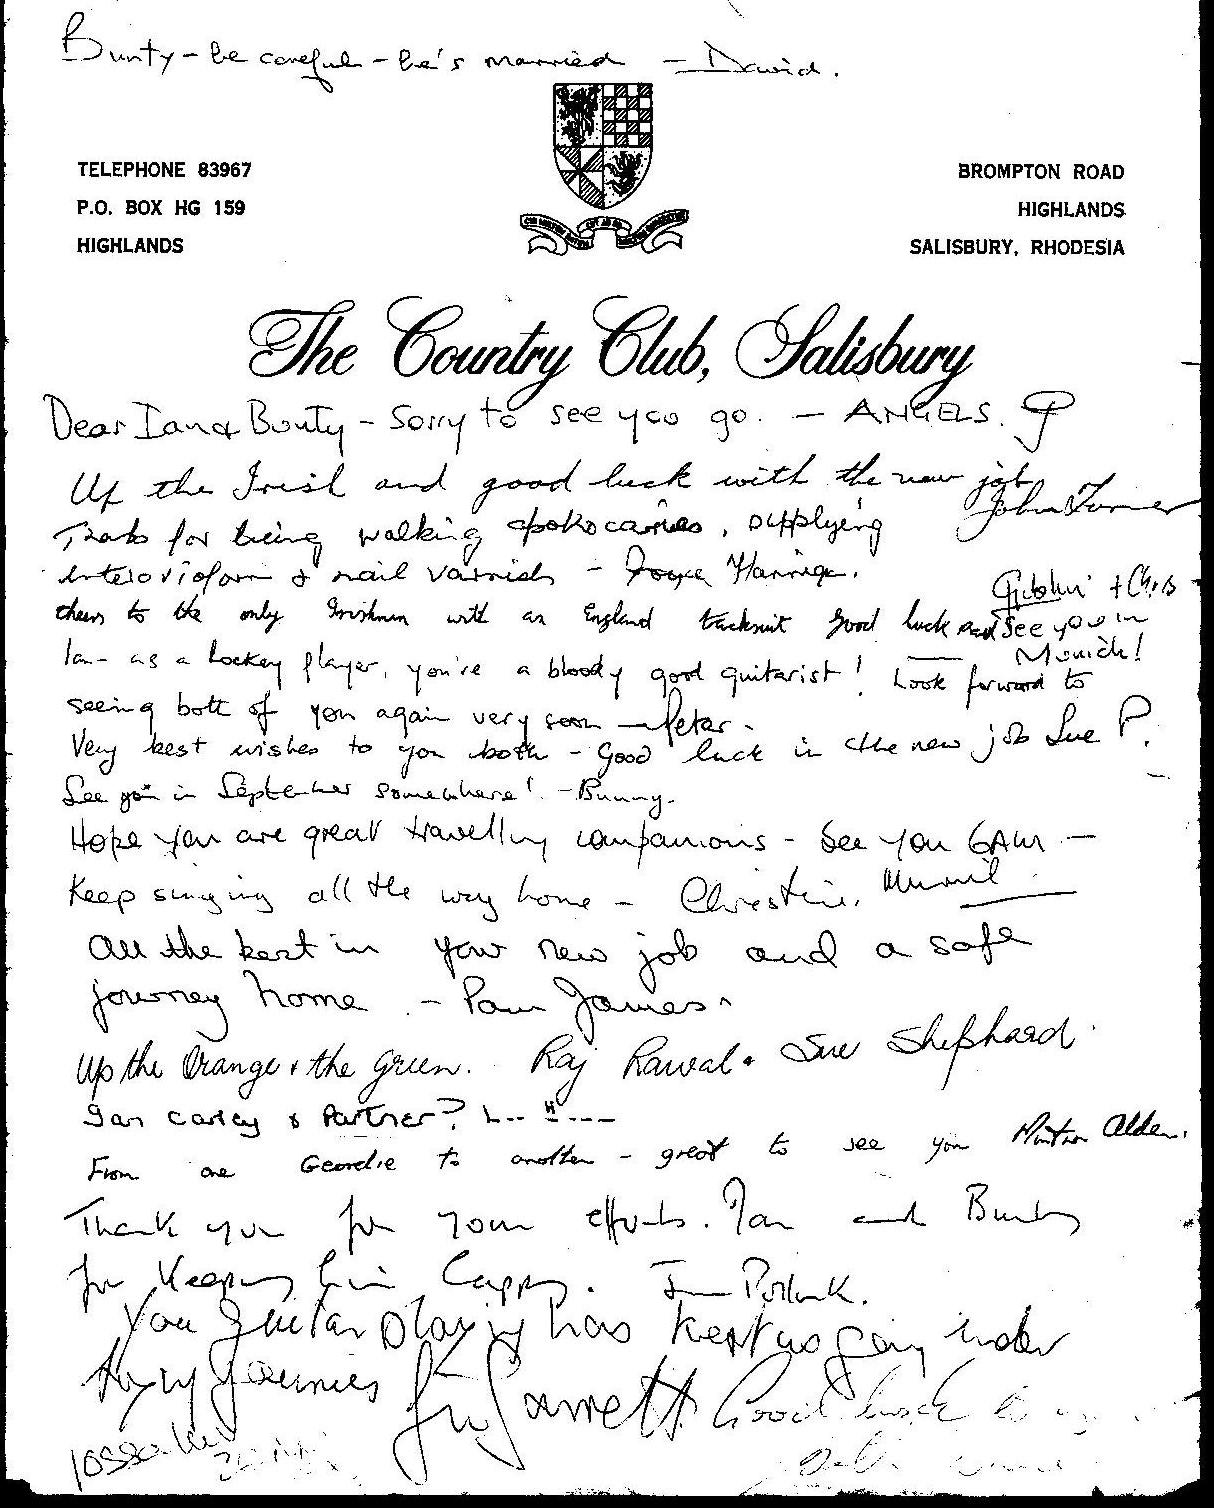 Bunty - be careful - he's married - David.
TELEPHONE 83967
P.O. BOX HG 159
HIGHLANDS
BROMPTON ROAD
HIGHLANDS
SALISBURY, RHODESIA
The Country Club, Salisbury
Dear Ian & Bunty - Sorry to see you go. - ANGELS.
Up the Irish and good luck with the new job John Turner
for being walking supplying
& nail varnish -
Cheers to the only Irishman with an England tracksuit Good luck and see you in
+ Chris
Munich!
Ian - as a hockey player, you're a bloody good guitarist! Look forward to
seeing both of you again very soon - Peter.
Very best wishes to you both - Good luck in the new job Sue P.
See you in September somewhere! - Bunny.
Hope you are great travelling companions - See you 6AM -
Keep singing all the way home - Christine.
All the best in your new job and a safe
journey home - Pam James.
Up the Orange & the green. Raj Rawal. Sue Shephard.
Ian Carley & Partner?
From one Geordie to another - great to see you Alden.
Thank you for your efforts. Ian and Bunty
for keeping him happy. Pollock.
You guitar playing has kept us going under
Garrett Good luck